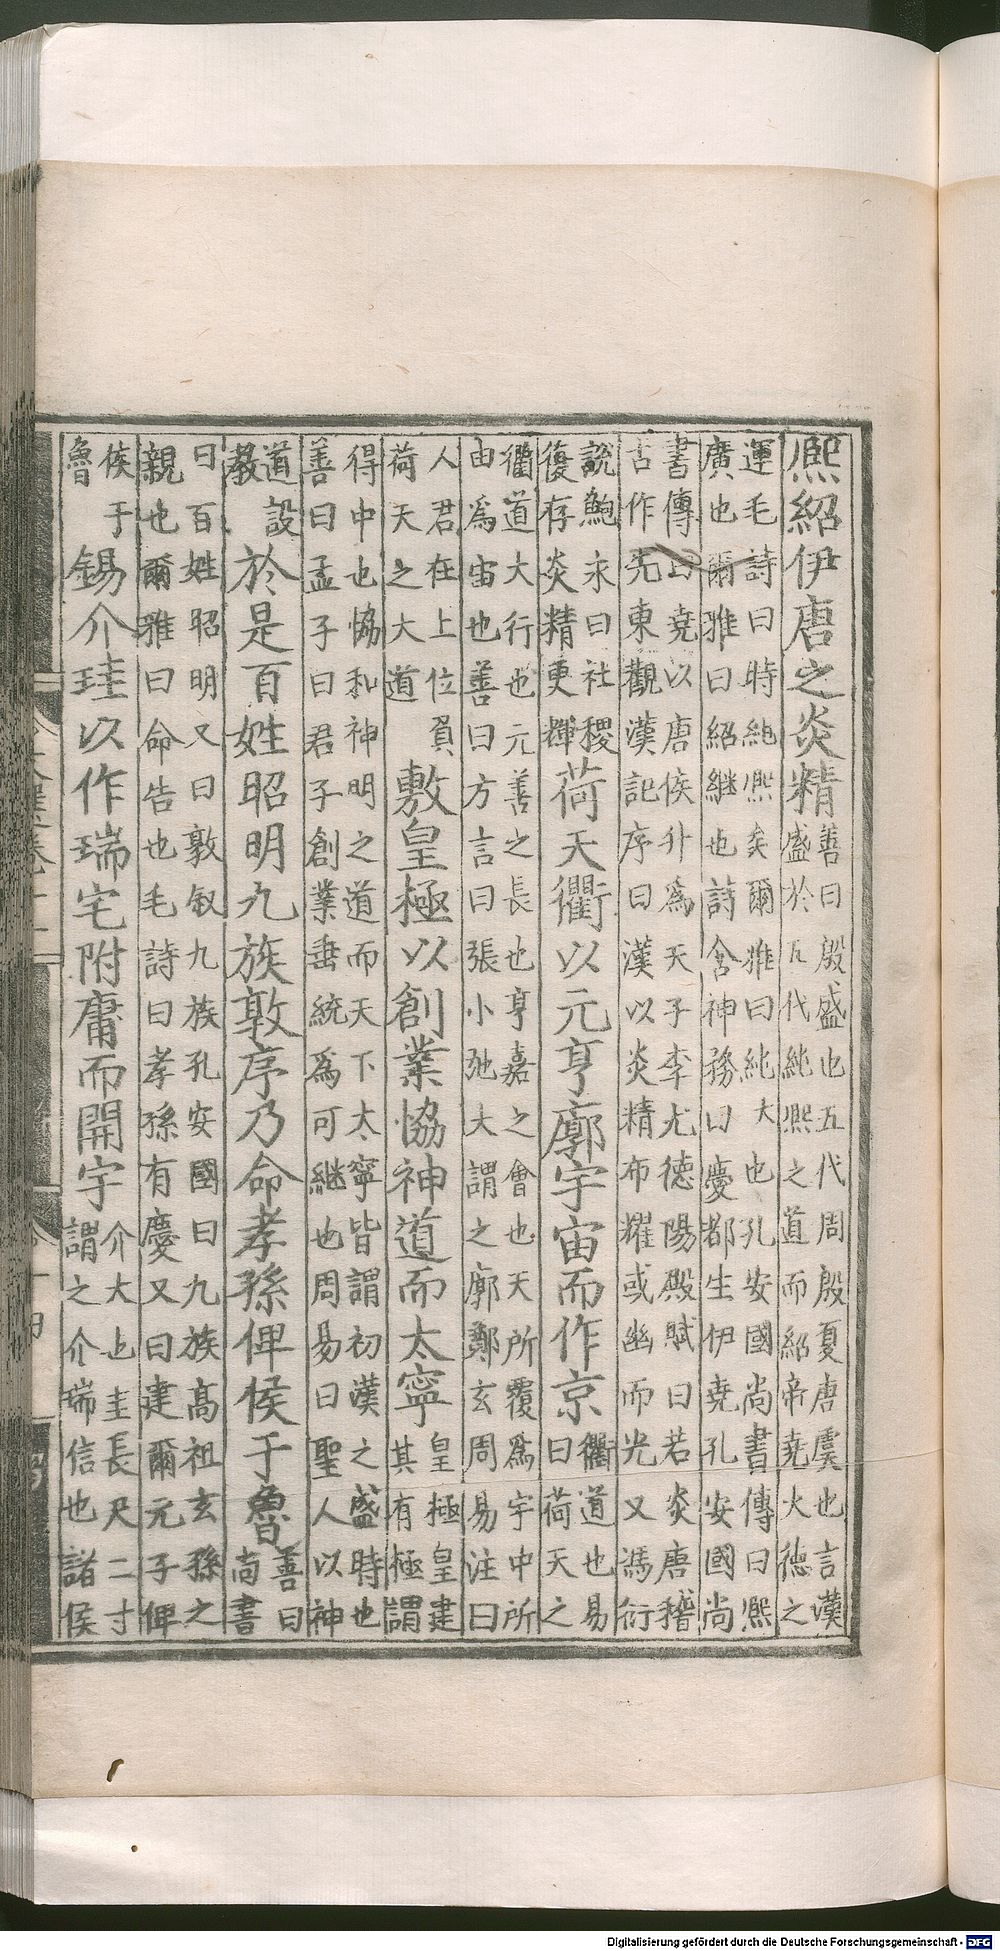 熈紹伊唐之炎精善曰殷盛也五代周殷夏唐虞也言漢盛於五代純熈之道而紹帝堯火德之
運毛詩曰時純熈矣爾雅曰純大也孔安國尚書傳曰熈廣也爾雅曰紹繼也詩含神務曰慶都生伊堯孔安國尚
書傳曰堯以唐侯升爲天子李尤德陽殿賦曰若炎唐稽古作先東觀漢記序曰漢以炎精布耀或幽而光又馮衍
說鮑永曰社稷復存炎精更輝荷天衢以元亨廓宇宙而作京衢道也易曰荷天之
衢道大行也元善之長也亨嘉之會也天所覆爲宇中所由爲宙也善曰方言曰張小弛大謂之廓鄭玄周易注曰
人君在上位負荷天之大道敷皇極以創業恊神道而太寧皇極皇建其有極謂
得中也恊和神明之道而天下太寧皆謂初漢之盛時也善曰孟子曰君子創業垂統爲可繼也周易曰聖人以神
道設教於是百姓昭明九族敦序乃命孝孫俾侯于魯善曰尚書
曰百姓昭明又曰敦敘九族孔安國曰九族高祖玄孫之親也爾雅曰命告也毛詩曰孝孫有慶又曰建爾元子俾
侯于魯錫介珪以作瑞宅附庸而開宇介大也圭長尺二寸謂之介瑞信也諸侯
Digitalisierung gefördert durch die Deutsche Forschungsgemeinschaft - DFG